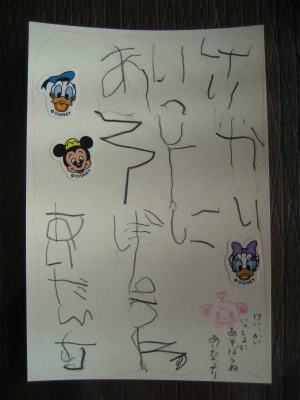 けいかい
いっしょに
あそぼうね
けい、かい
いっしょに
あそぼうね
あいなより
©DISNEY
©DISNEY
©DISNEY